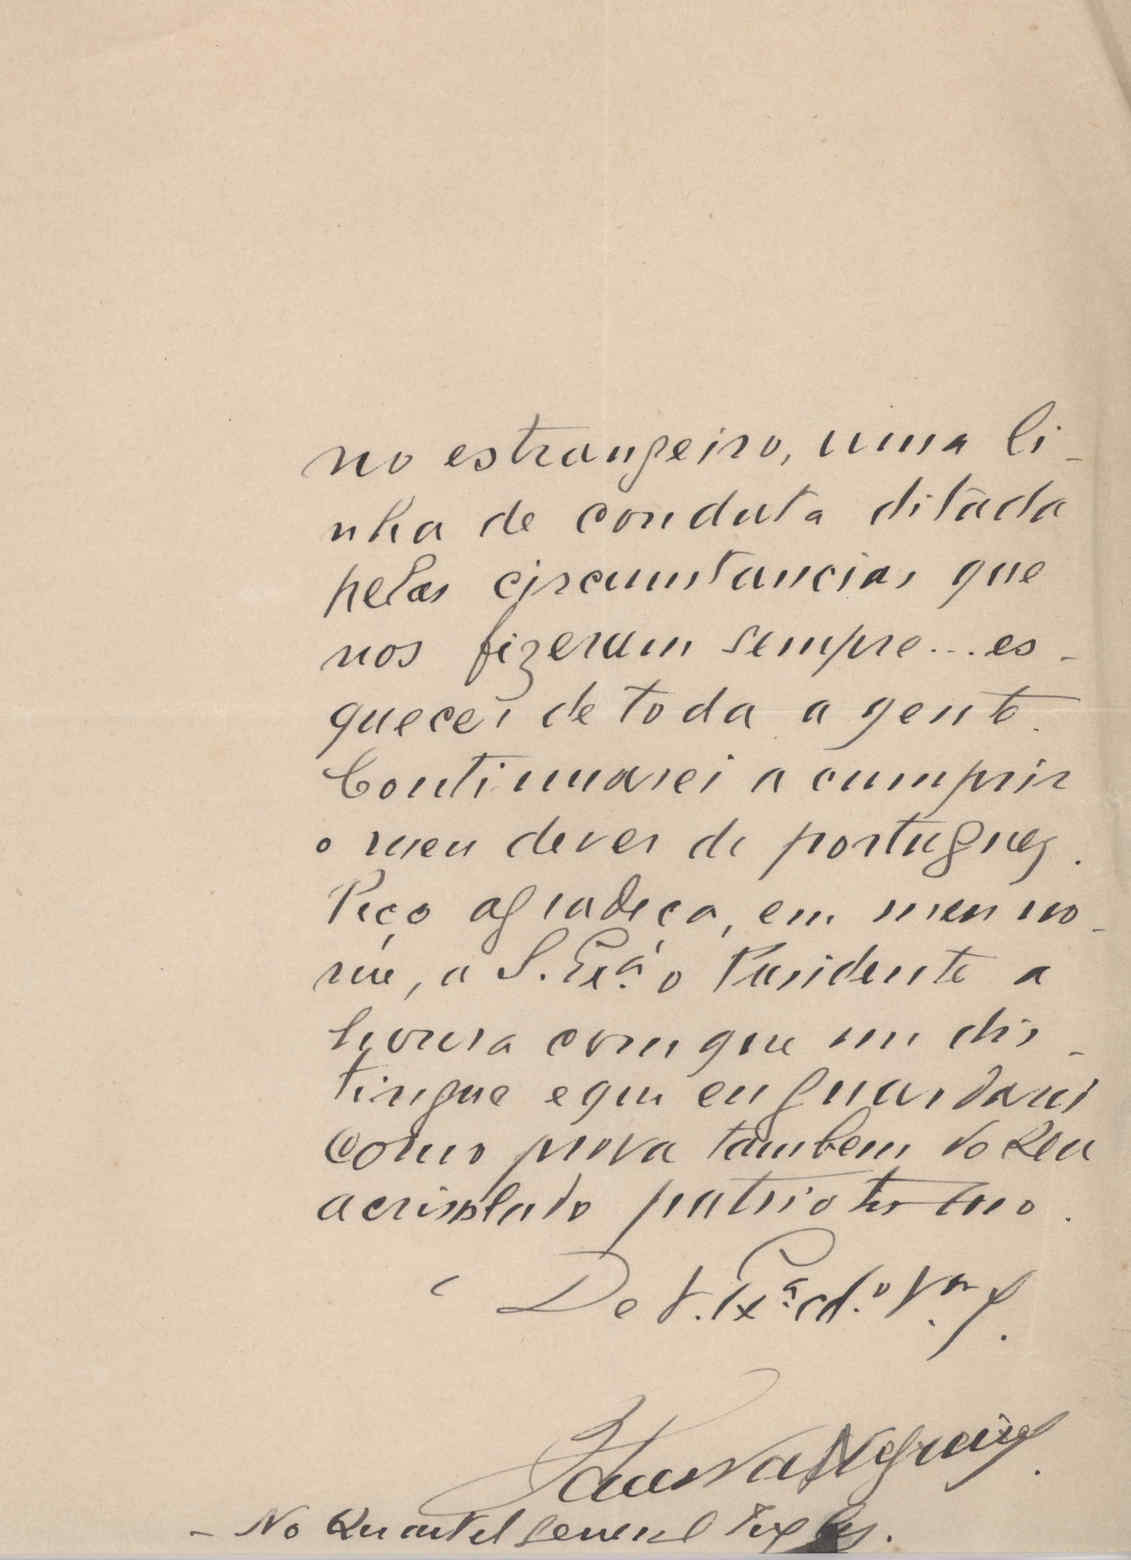 no estrangeiro, uma li-
nha de conduta ditada
pelas circumstancias que
nos fizeram sempre... es-
quecer de toda a gente.
Continuarei a cumprir
o meu dever de portuguez.
Peço agradeça, em meu no-
me, a S. Exª. o Presidente a
honra com que me dis-
tingue e que eu guardarei
como prova tambem do seu
acrisolado patriotismo.
De V. Exª.
No Quartel General